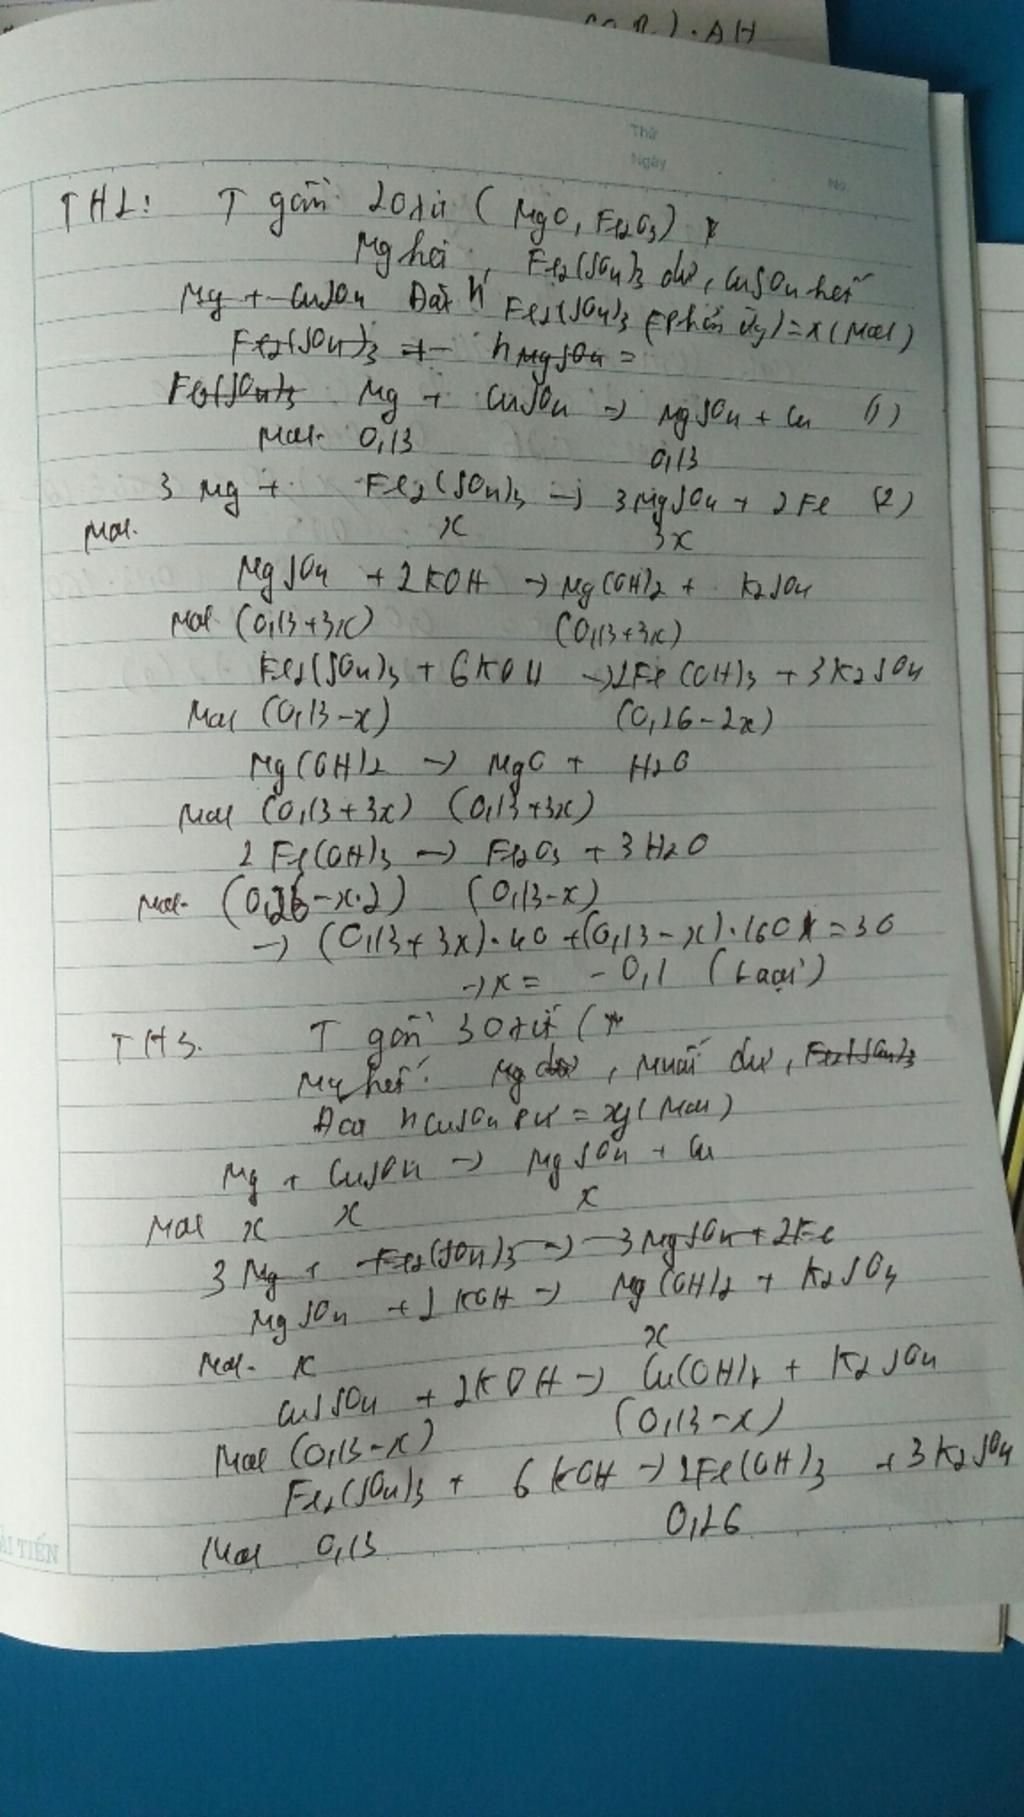 ). AH
Thứ
Ngày
No.
TH2: T gồm 2 oxit (MgO, Fe2O3)
Mg hết, Fe2(SO4)3 dư, CuSO4 hết
Mg + CuSO4 Đặt n Fe2(SO4)3 (phản ứng) = x (mol)
Fe2(SO4)3 + nMgSO4 =
Fe2(SO4)3 Mg + CuSO4 → MgSO4 + Cu (1)
Mol 0,13 0,13
3 Mg + Fe2(SO4)3 → 3MgSO4 + 2Fe (2)
Mol x 3x
MgSO4 + 2KOH → Mg(OH)2 + K2SO4
Mol (0,13+3x) (0,13+3x)
Fe2(SO4)3 + 6KOH → 2Fe(OH)3 + 3K2SO4
Mol (0,13-x) (0,26-2x)
Mg(OH)2 → MgO + H2O
Mol (0,13+3x) (0,13+3x)
2Fe(OH)3 → Fe2O3 + 3H2O
Mol (0,26-x.2) (0,13-x)
→ (0,13+3x).40 + (0,13-x).160 = 30
→ x = -0,1 (Loại)
TH3. T gồm 3 oxit (
Mg hết. Mg dư, Muối dư, Fe2(SO4)3
Đặt nCuSO4 pư = x (Mol)
Mg + CuSO4 → MgSO4 + Cu
Mol x x x
3 Mg + Fe2(SO4)3 → 3MgSO4 + 2Fe
MgSO4 + 2KOH → Mg(OH)2 + K2SO4
Mol x x
CuSO4 + 2KOH → Cu(OH)2 + K2SO4
Mol (0,13-x) (0,13-x)
Fe2(SO4)3 + 6KOH → 2Fe(OH)3 + 3K2SO4
Mol 0,13 0,26
ẢI TIẾN